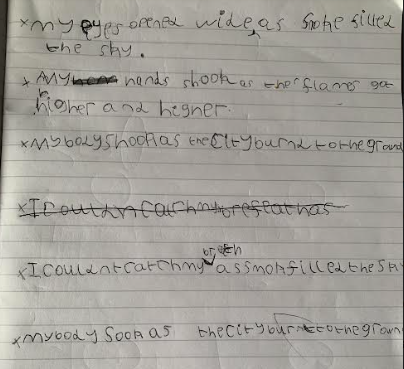 ×my eyes opened wide, as Smoke filled
the sky.
× My hands shook as the flames got
higher and higher.
×My body shook as the City burnd to the ground
×I couldn catch my
×I couldnt catch my breth as smoh filled the sky
×my body Sook as the City burnt to the groun